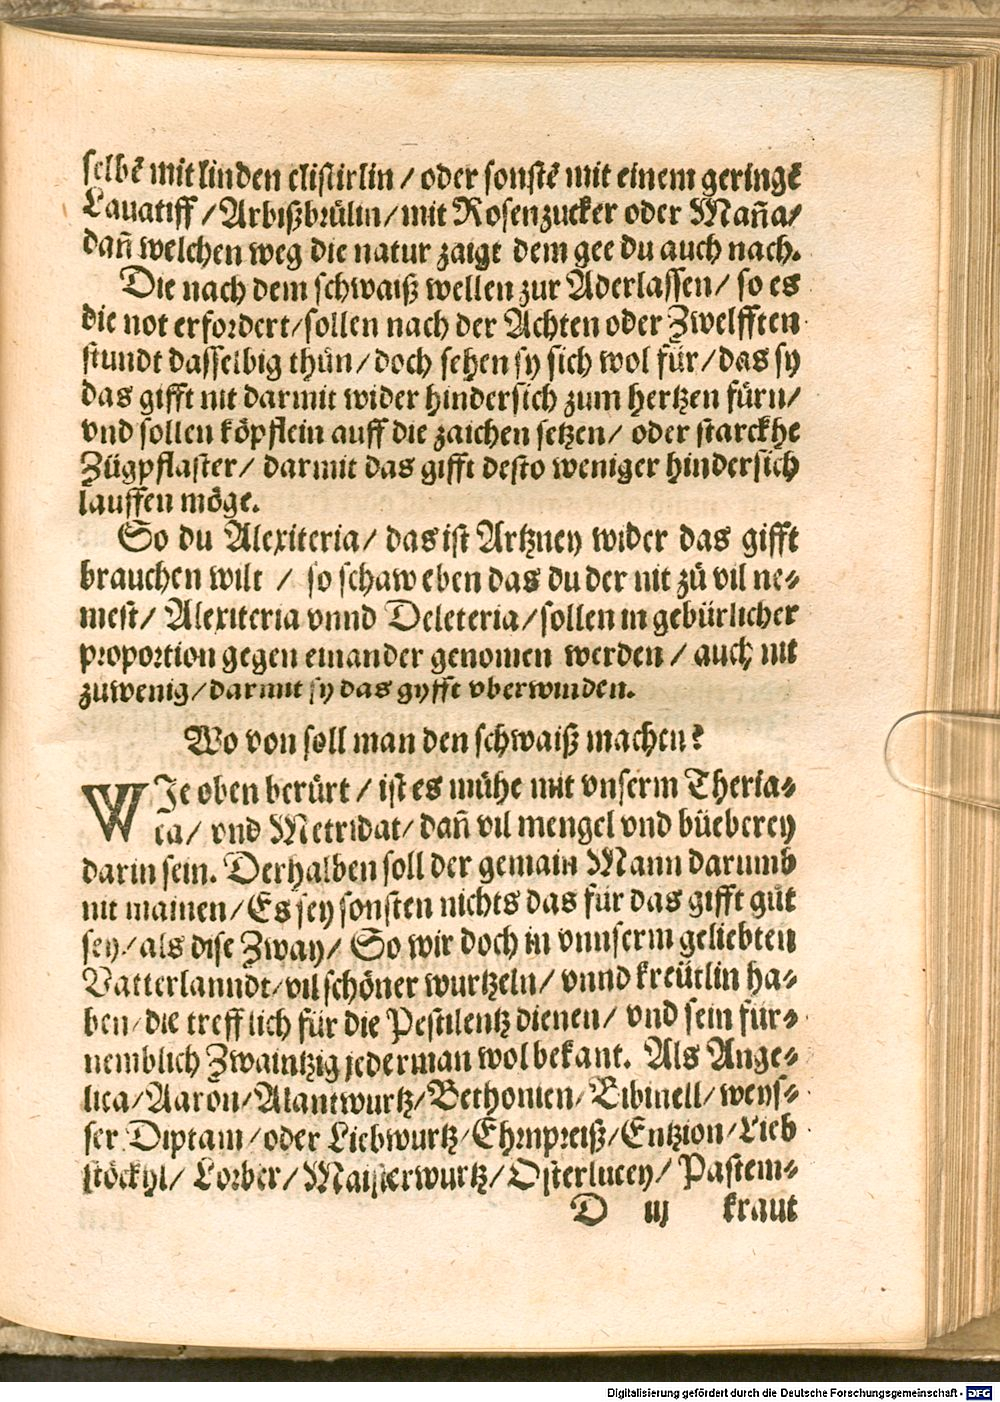 selbẽ mit linden clistirlin / oder sonstẽ mit einem geringẽ
Lauatiff / Arbißbrülin / mit Rosenzucker oder Maña /
dañ welchen weg die natur zaigt dem gee du auch nach.
Die nach dem schwaiß wellen zur Aderlassen / so es
die not erfordert / sollen nach der Achten oder Zwelfften
stundt dasselbig thůn / doch sehen sy sich wol für / das sy
das gifft nit darmit wider hindersich zum hertzen fürn /
vnd sollen köpflein auff die zaichen setzen / oder starckhe
Zügpflaster / darmit das gifft desto weniger hindersich
lauffen möge.
So du Alexiteria / das ist Artzney wider das gifft
brauchen wilt / so schaw eben das du der nit zů vil ne⸗
mest / Alexiteria vnnd Deleteria / sollen in gebürlicher
proportion gegen einander genomen werden / auch nit
zuwenig / darmit sy das gyfft vberwinden.
Wo von soll man den schwaiß machen?
WJe oben berürt / ist es mühe mit vnserm Theria⸗
ca / vnd Metridat / dañ vil mengel vnd büeberey
darin sein. Derhalben soll der gemain Mann darumb
nit mainen / Es sey sonsten nichts das für das gifft gůt
sey / als dise Zway / So wir doch in vnnserm geliebten
Vatterlanndt / vil schöner wurtzeln / vnnd kreütlin ha⸗
ben / die trefflich für die Pestilentz dienen / vnd sein für⸗
nemblich Zwaintzig jederman wol bekant. Als Ange⸗
lica / Aaron / Alantwurtz / Bethonien / Bibinell / weys⸗
ser Diptam / oder Liebwurtz / Ehrnpreiß / Entzion / Lieb
stöckhl / Lorber / Maisterwurtz / Osterlucey / Pastem⸗
D iij kraut
Digitalisierung gefördert durch die Deutsche Forschungsgemeinschaft - DFG